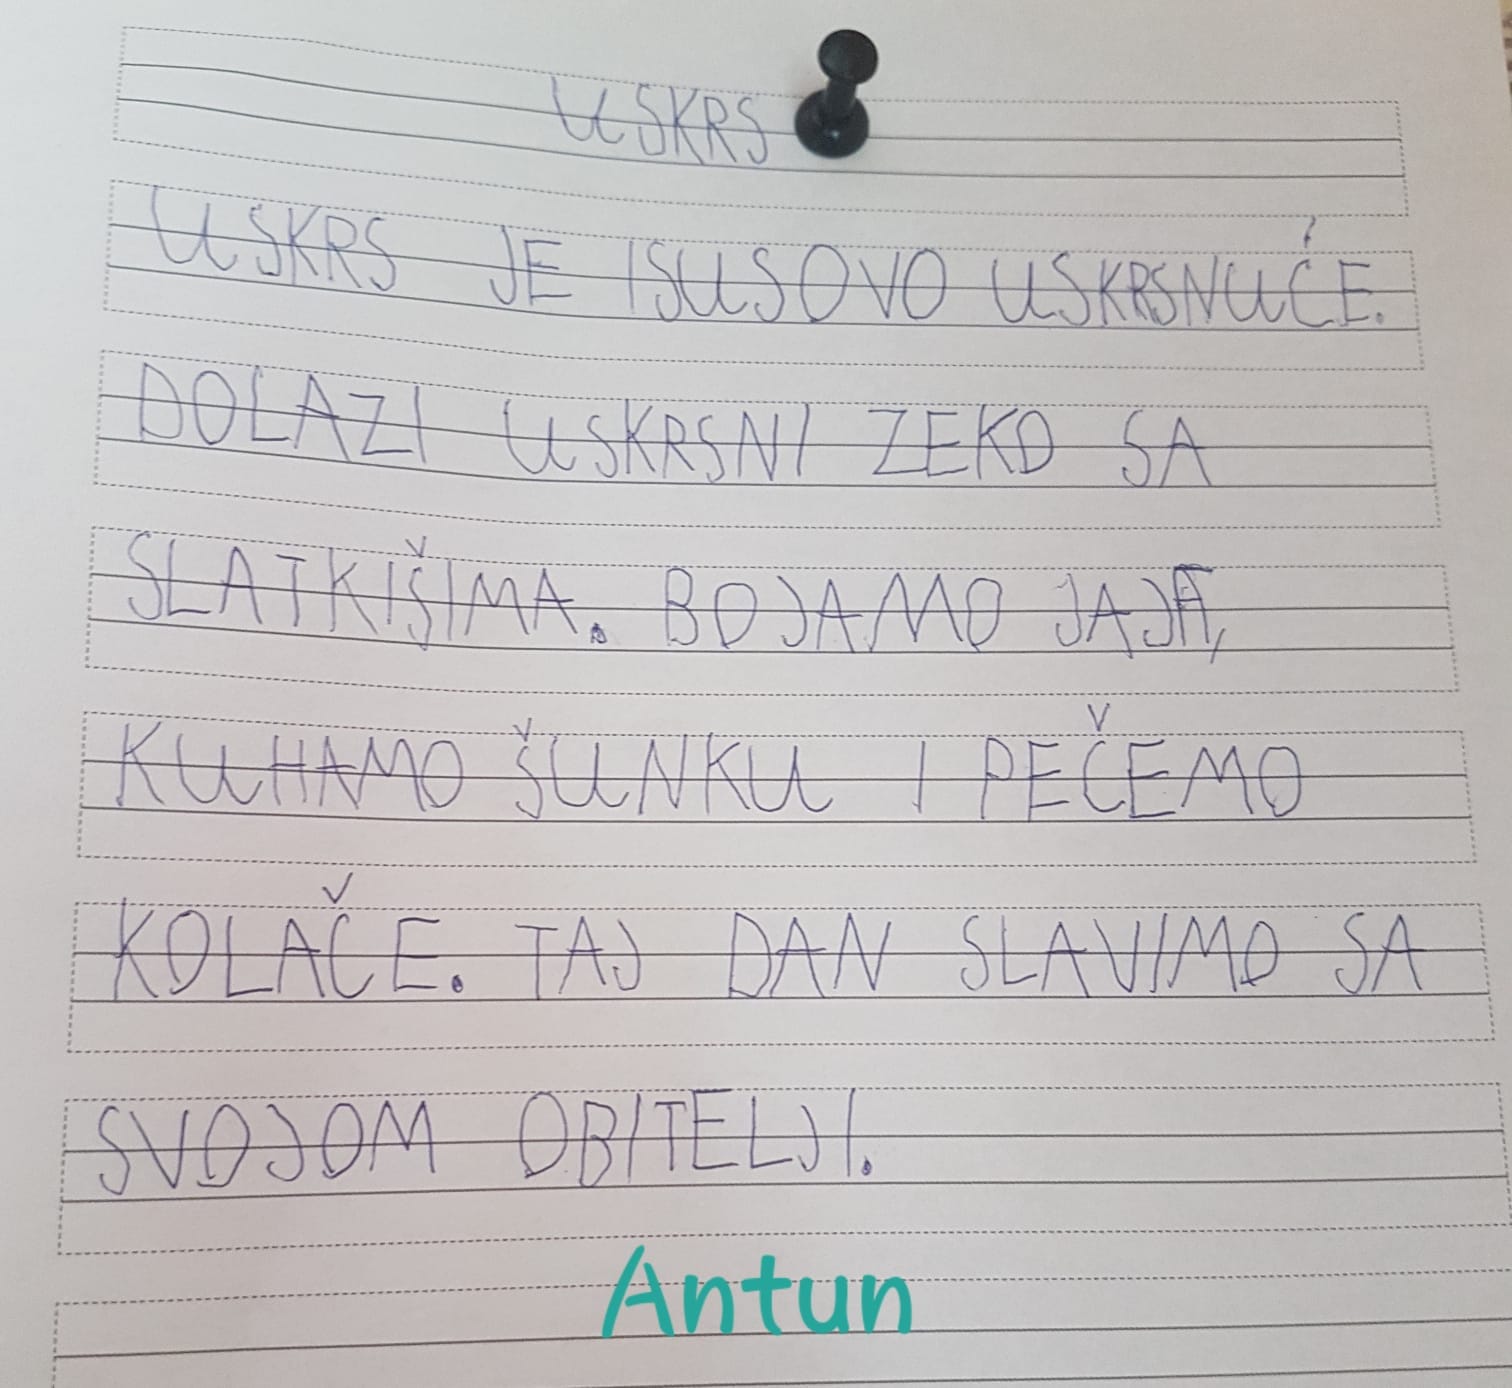 USKRS
USKRS JE ISUSOVO USKRSNUĆE.
DOLAZI USKRSNI ZEKO SA
SLATKIŠIMA. BOJAMO JAJA,
KUHAMO ŠUNKU I PEČEMO
KOLAČE. TAJ DAN SLAVIMO SA
SVOJOM OBITELJI.
Antun